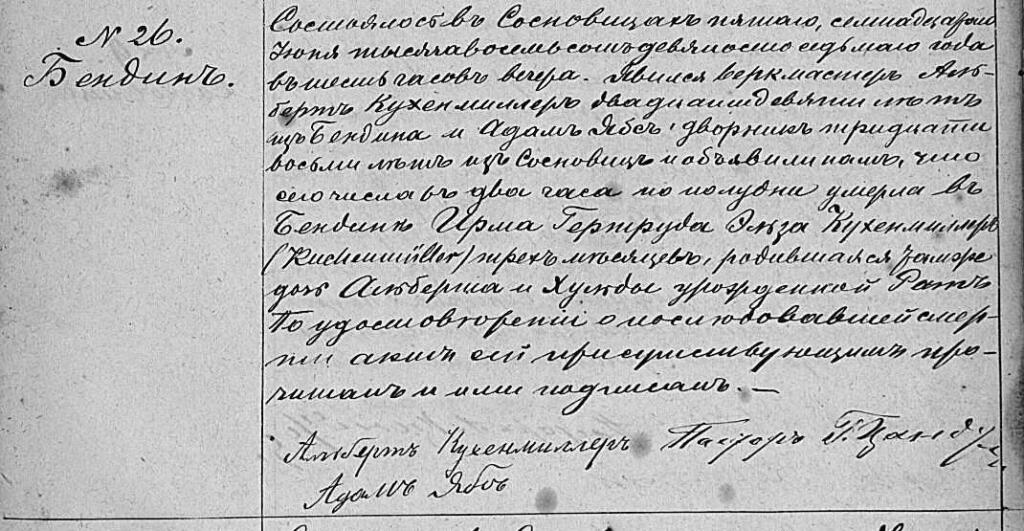 N 26.
Бендинъ.
Состоялось въ Сосновицахъ пятаго, семнадцатаго
Іюня тысяча восемьсотъ девяносто седьмаго года
въ шесть часовъ вечера. Явился веркмастеръ Аль-
бертъ Кухенмиллеръ двадцати девяти лѣтъ
изъ Бендина и Адамъ Ябсъ, дворникъ тридцати
восьми лѣтъ изъ Сосновицъ и объявили намъ, что
сего числа въ два часа по полудни умерла въ
Бендинѣ Ирма Гертруда Эльза Кухенмиллеръ
(Kuchenmüller) трехъ мѣсяцевъ, родившаяся тамъ же
дочь Альберта и Хульды урожденной Ратъ
По удостовѣреніи о послѣдовавшей смер-
ти актъ сей присутствующимъ про-
читанъ и ими подписанъ. —
Альбертъ Кухенмиллеръ Пасторъ Г. Цандеръ
Адамъ Ябсъ